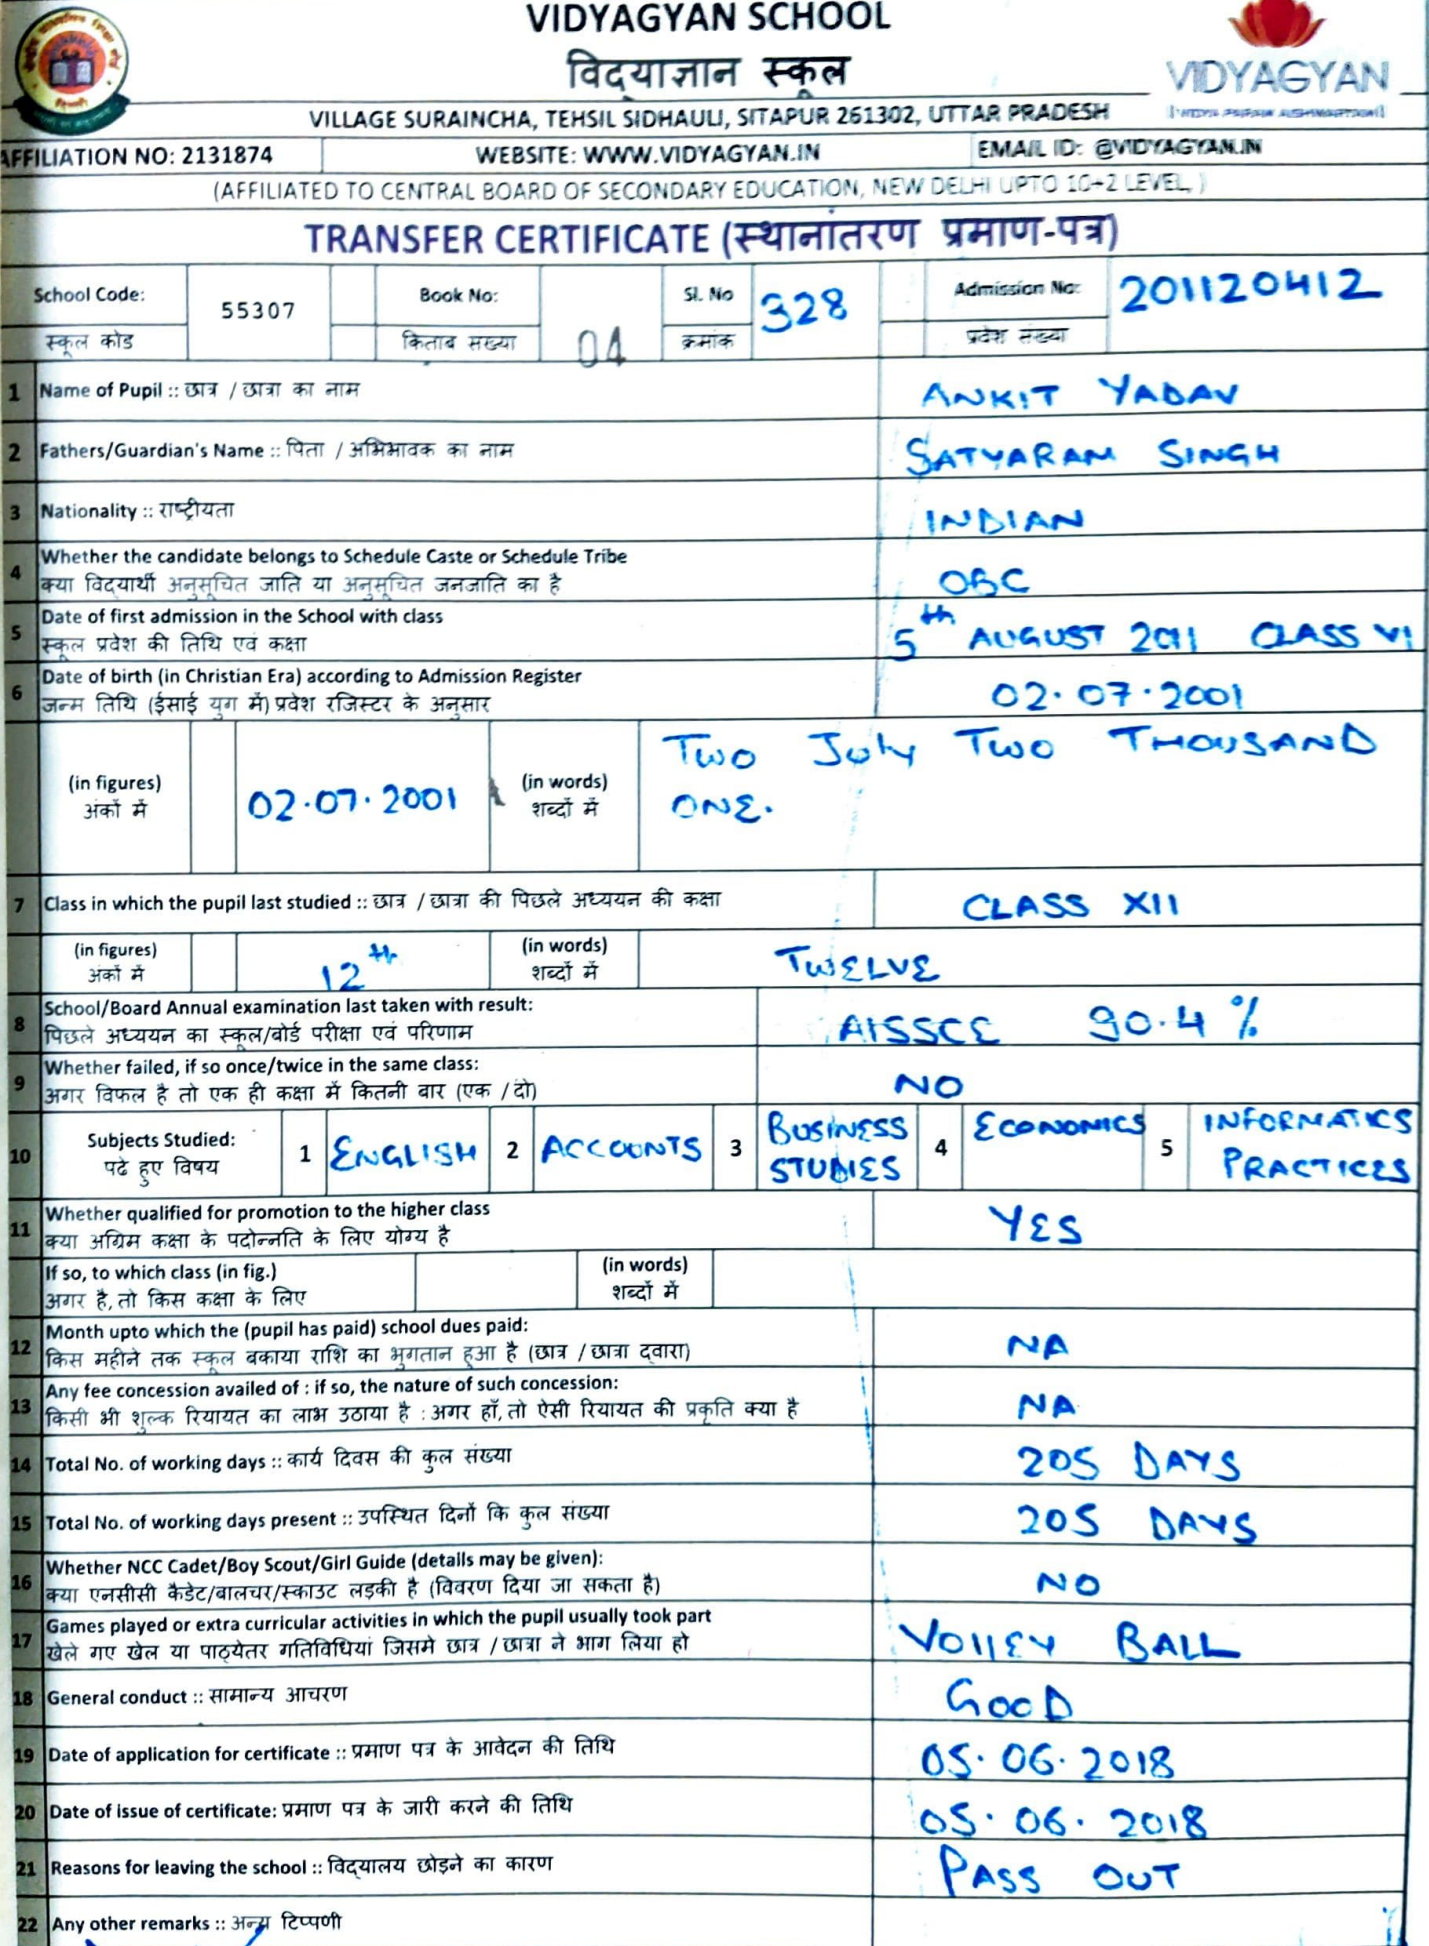 VIDYAGYAN SCHOOL
विद्याज्ञान स्कूल
VIDYAGYAN
VILLAGE SURAINCHA, TEHSIL SIDHAULI, SITAPUR 261302, UTTAR PRADESH
AFFILIATION NO: 2131874 WEBSITE: WWW.VIDYAGYAN.IN EMAIL ID: @VIDYAGYAN.IN
(AFFILIATED TO CENTRAL BOARD OF SECONDARY EDUCATION, NEW DELHI UPTO 10+2 LEVEL, )
TRANSFER CERTIFICATE (स्थानांतरण प्रमाण-पत्र)
School Code: 55307 Book No: 04 Sl. No 328 Admission No: 201120412
स्कूल कोड किताब संख्या क्रमांक प्रवेश संख्या
1 Name of Pupil :: छात्र / छात्रा का नाम ANKIT YADAV
2 Fathers/Guardian's Name :: पिता / अभिभावक का नाम SATYARAM SINGH
3 Nationality :: राष्ट्रीयता INDIAN
4 Whether the candidate belongs to Schedule Caste or Schedule Tribe
क्या विद्यार्थी अनुसूचित जाति या अनुसूचित जनजाति का है OBC
5 Date of first admission in the School with class
स्कूल प्रवेश की तिथि एवं कक्षा 5th AUGUST 2011 CLASS VI
6 Date of birth (in Christian Era) according to Admission Register
जन्म तिथि (ईसाई युग में) प्रवेश रजिस्टर के अनुसार 02.07.2001
(in figures) 02.07.2001 (in words) TWO July TWO THOUSAND
अंकों में शब्दों में ONE.
7 Class in which the pupil last studied :: छात्र / छात्रा की पिछले अध्ययन की कक्षा CLASS XII
(in figures) 12th (in words) TWELVE
अंकों में शब्दों में
8 School/Board Annual examination last taken with result: AISSCE 90.4 %
पिछले अध्ययन का स्कूल/बोर्ड परीक्षा एवं परिणाम
9 Whether failed, if so once/twice in the same class: NO
अगर विफल है तो एक ही कक्षा में कितनी बार (एक / दो)
10 Subjects Studied: 1 ENGLISH 2 ACCOUNTS 3 BUSINESS STUDIES 4 ECONOMICS 5 INFORMATICS PRACTICES
पढे हुए विषय
11 Whether qualified for promotion to the higher class YES
क्या अग्रिम कक्षा के पदोन्नति के लिए योग्य है
If so, to which class (in fig.) (in words)
अगर है, तो किस कक्षा के लिए शब्दों में
12 Month upto which the (pupil has paid) school dues paid: NA
किस महीने तक स्कूल बकाया राशि का भुगतान हुआ है (छात्र / छात्रा द्वारा)
13 Any fee concession availed of : if so, the nature of such concession: NA
किसी भी शुल्क रियायत का लाभ उठाया है : अगर हाँ, तो ऐसी रियायत की प्रकृति क्या है
14 Total No. of working days :: कार्य दिवस की कुल संख्या 205 DAYS
15 Total No. of working days present :: उपस्थित दिनों कि कुल संख्या 205 DAYS
16 Whether NCC Cadet/Boy Scout/Girl Guide (details may be given): NO
क्या एनसीसी कैडेट/बालचर/स्काउट लड़की है (विवरण दिया जा सकता है)
17 Games played or extra curricular activities in which the pupil usually took part VOllEY BALL
खेले गए खेल या पाठ्येतर गतिविधियां जिसमे छात्र / छात्रा ने भाग लिया हो
18 General conduct :: सामान्य आचरण GOOD
19 Date of application for certificate :: प्रमाण पत्र के आवेदन की तिथि 05.06.2018
20 Date of issue of certificate: प्रमाण पत्र के जारी करने की तिथि 05.06.2018
21 Reasons for leaving the school :: विद्यालय छोड़ने का कारण PASS OUT
22 Any other remarks :: अन्य टिप्पणी